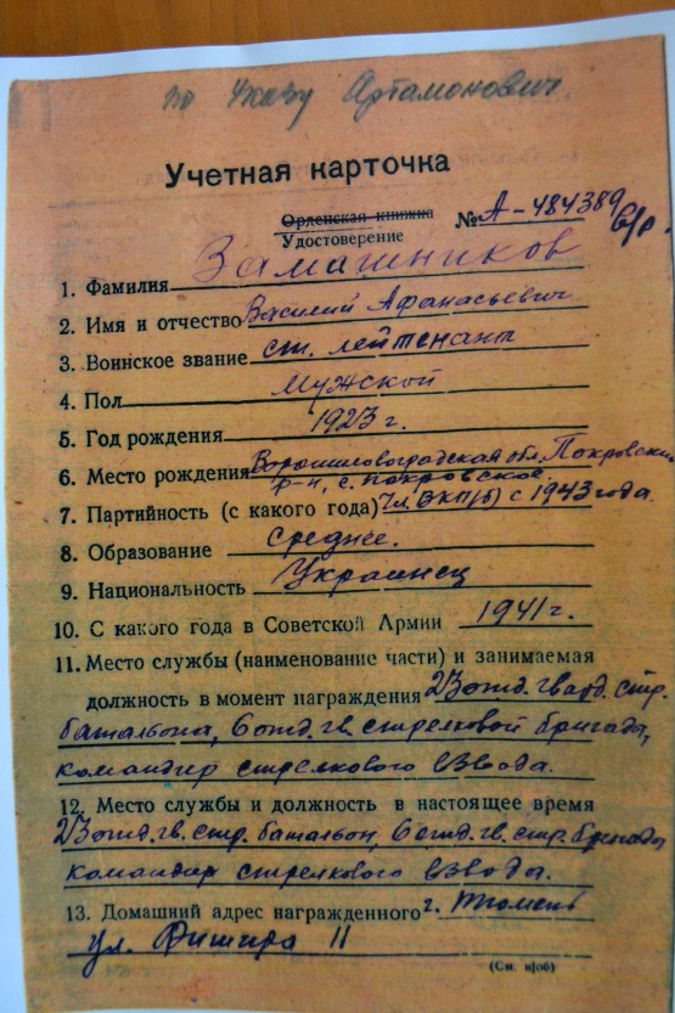 по Указу Артамонович.
Учетная карточка
Орденская книжка № А-484389 б/р.
Удостоверение
1. Фамилия Замашников
2. Имя и отчество Василий Афанасьевич
3. Воинское звание ст. лейтенант
4. Пол мужской
5. Год рождения 1923 г.
6. Место рождения Ворошиловоградская обл. Покровский
р-н, с. покровское.
7. Партийность (с какого года) Чл. ВКП(б) с 1943 года.
8. Образование среднее.
9. Национальность Украинец
10. С какого года в Советской Армии 1941 г.
11. Место службы (наименование части) и занимаемая
должность в момент награждения 23 отд. гвард. стр.
батальона, 6 отд. гв. стрелковой бригады,
командир стрелкового взвода.
12. Место службы и должность в настоящее время
23 отд. гв. стр. батальон, 6 отд. гв. стр. бригады
командир стрелкового взвода.
13. Домашний адрес награжденного г. Тюмень
ул. 11
(См. н|об)